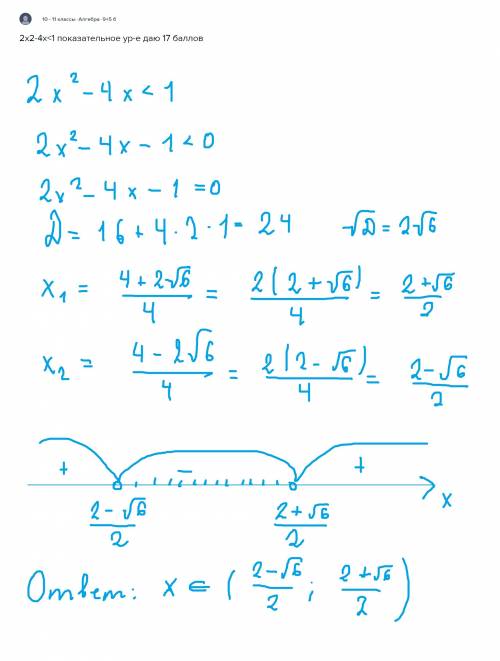 10 - 11 классы · Алгебра · 9+5 б
2х2-4х<1 показательное ур-е даю 17 баллов
2x² - 4x < 1
2x² - 4x - 1 < 0
2x² - 4x - 1 = 0
D = 16 + 4 · 2 · 1 = 24 √D = 2√6
x₁ = (4 + 2√6)/4 = 2(2 + √6)/4 = (2 + √6)/2
x₂ = (4 - 2√6)/4 = 2(2 - √6)/4 = (2 - √6)/2
+ - +
(2 - √6)/2 (2 + √6)/2 x
Ответ: x ∈ ((2 - √6)/2 ; (2 + √6)/2)